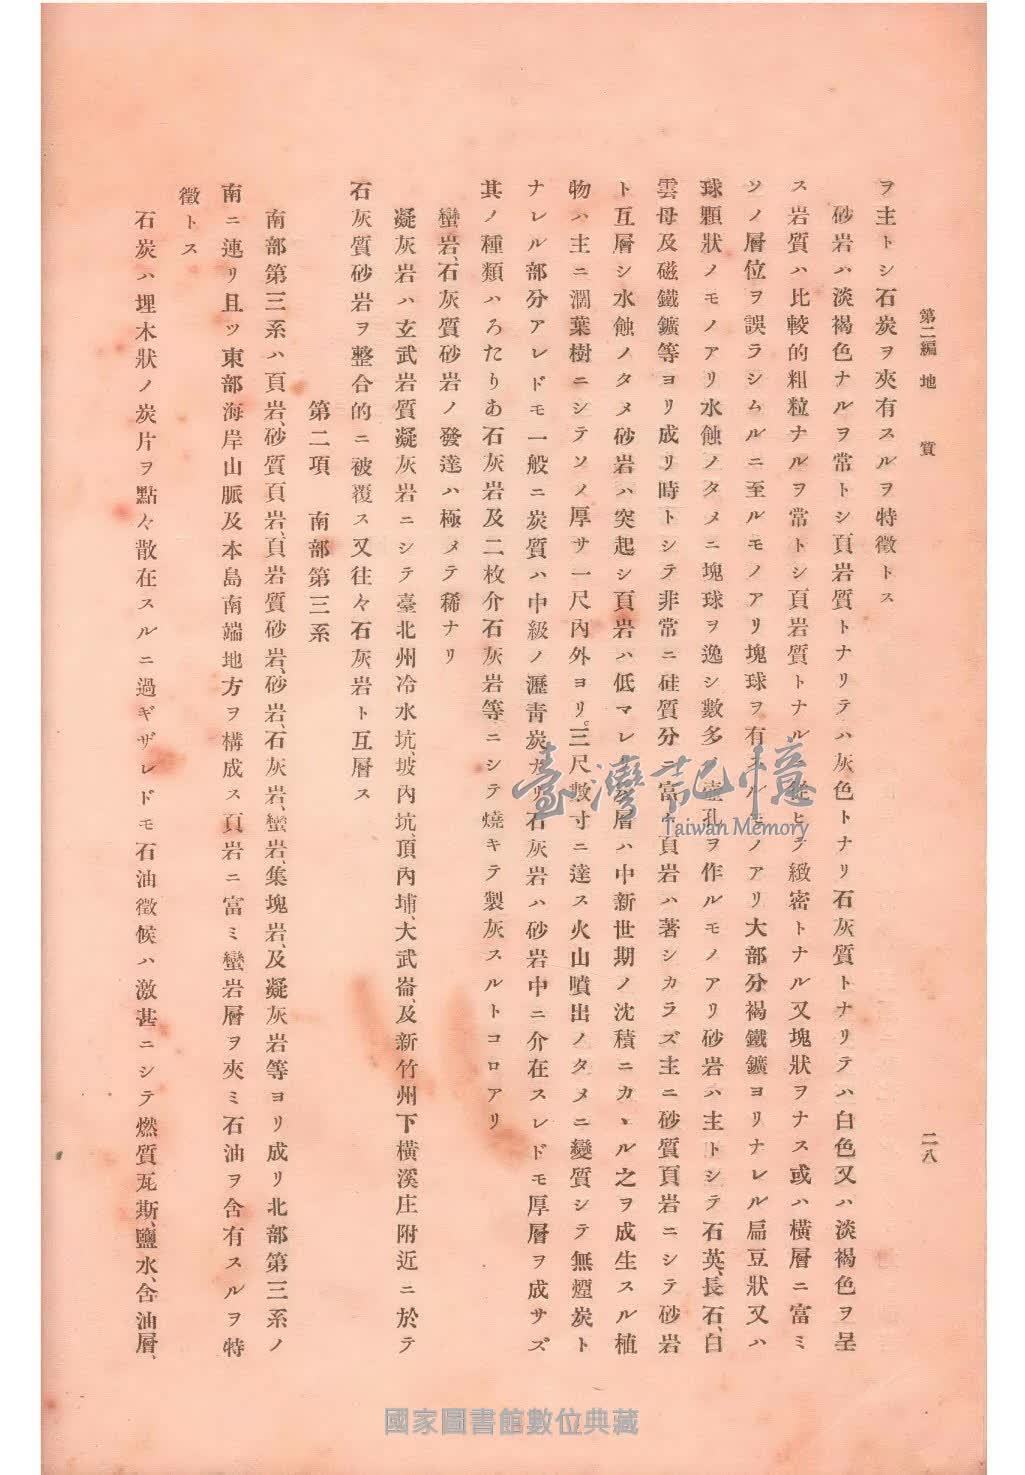 第二編 地 質
二八
ヲ主トシ石炭ヲ夾有スルヲ特徵トス
砂岩ハ淡褐色ナルヲ常トシ頁岩質トナリテハ灰色トナリ石灰質トナリテハ白色又ハ淡褐色ヲ呈
ス岩質ハ比較的粗粒ナルヲ常トシ頁岩質トナル從ヒテ緻密トナル又塊狀ヲナス或ハ橫層ニ富ミ
ソノ層位ヲ誤ラシムルニ至ルモノアリ塊球ヲ有スルモノアリ大部分褐鐵鑛ヨリナレル扁豆狀又ハ
球顆狀ノモノアリ水蝕ノタメニ塊球ヲ逸シ數多ノ壺孔ヲ作ルモノアリ砂岩ハ主トシテ石英、長石、白
雲母及磁鐵鑛等ヨリ成リ時トシテ非常ニ硅質分ニ富ム頁岩ハ著シカラズ主ニ砂質頁岩ニシテ砂岩
ト互層シ水蝕ノタメ砂岩ハ突起シ頁岩ハ低マレリ炭層ハ中新世期ノ沈積ニカヽル之ヲ成生スル植
物ハ主ニ濶葉樹ニシテソノ厚サ一尺內外ヨリ三尺數寸ニ達ス火山噴出ノタメニ變質シテ無煙炭ト
ナレル部分アレドモ一般ニ炭質ハ中級ノ瀝靑炭ナリ石灰岩ハ砂岩中ニ介在スレドモ厚層ヲ成サズ
其ノ種類ハろたりあ石灰岩及二枚介石灰岩等ニシテ燒キテ製灰スルトコロアリ
蠻岩、石灰質砂岩ノ發達ハ極メテ稀ナリ
凝灰岩ハ玄武岩質凝灰岩ニシテ臺北州冷水坑、坡內坑、頂內埔、大武崙、及新竹州下橫溪庄附近ニ於テ
石灰質砂岩ヲ整合的ニ被覆ス又往々石灰岩ト互層ス
第二項 南部第三系
南部第三系ハ頁岩、砂質頁岩、頁岩質砂岩、砂岩、石灰岩、蠻岩、集塊岩、及凝灰岩等ヨリ成リ北部第三系ノ
南ニ連リ且ツ東部海岸山脈及本島南端地方ヲ構成ス頁岩ニ富ミ蠻岩層ヲ夾ミ石油ヲ含有スルヲ特
徵トス
石炭ハ埋木狀ノ炭片ヲ點々散在スルニ過ギザレドモ石油徵候ハ激甚ニシテ燃質瓦斯、鹽水、含油層、
臺灣記憶
Taiwan Memory
國家圖書館數位典藏